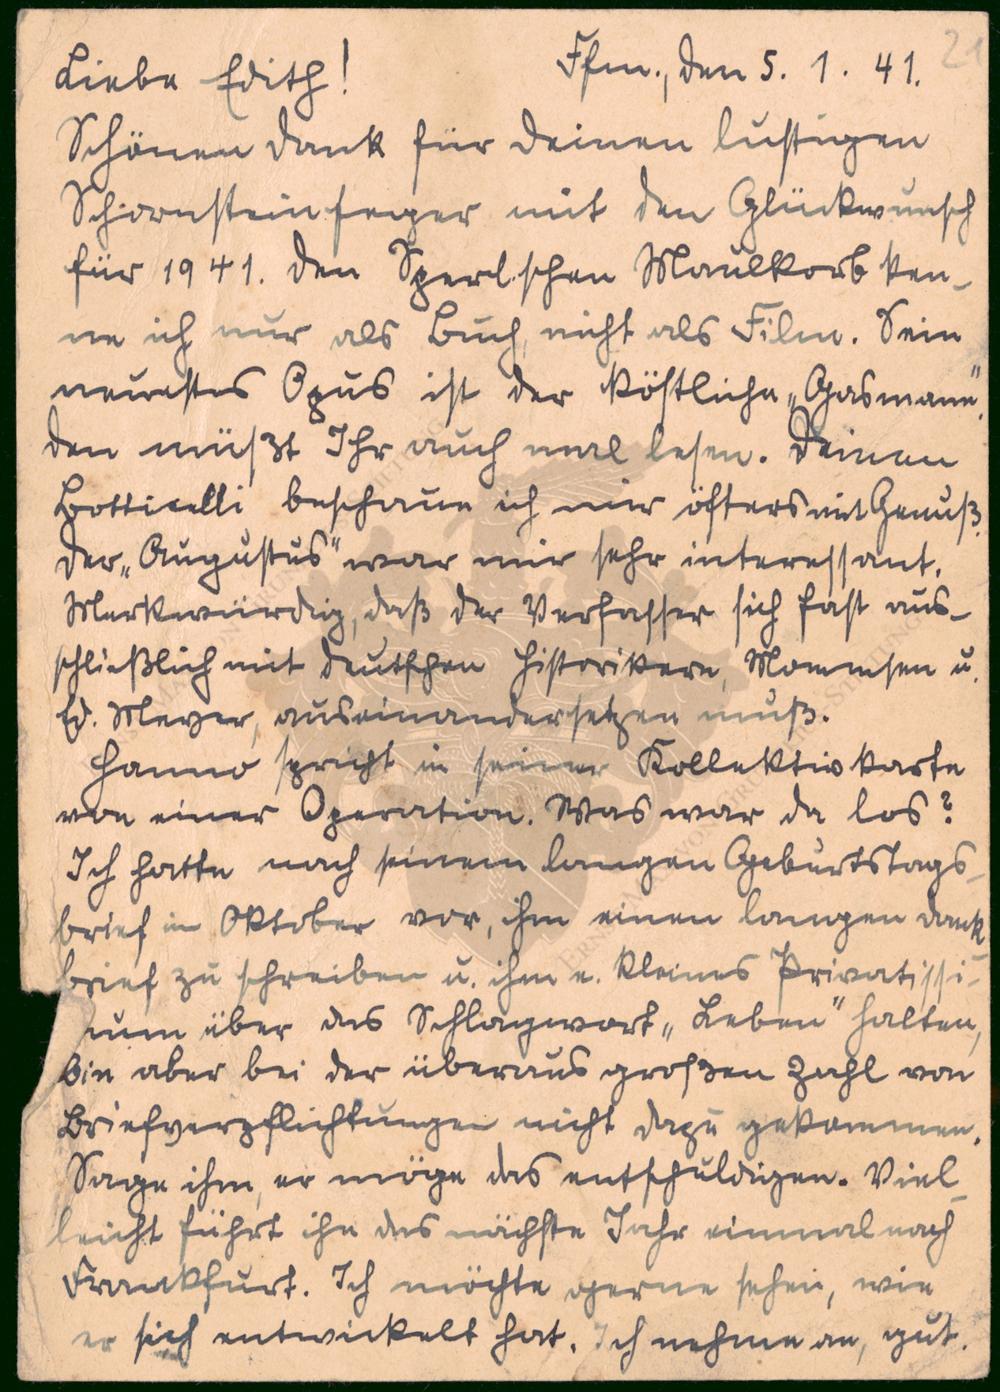 Liebe Edith! Ffm., den 5. 1. 41. 21
Schönen Dank für Deinen lustigen
Schornsteinfeger mit den Glückwunsch
für 1941. Den Sperl.schen Maulkorb ken-
ne ich nur als Buch, nicht als Film. Sein
neuestes Opus ist der köstliche „Gasmann",
den müßt Ihr auch mal lesen. Deinen
Botticelli beschaue ich mir öfters mit Genuß.
Der „Augustus" war mir sehr interessant.
Merkwürdig, daß der Verfasser sich fast aus-
schließlich mit deutschen Historikern, Mommsen u.
Ed. Meyer, auseinandersetzen muß.
Hanno spricht in seiner Kollektivkarte
von einer Operation. Was war da los?
Ich hatte nach seinem langen Geburtstags-
brief im Oktober vor, ihm einen langen Dank
brief zu schreiben u. ihm e. kleines Privatissi-
mum über das Schlagwort „Leben" halten,
bin aber bei der überaus großen Zahl von
Briefverpflichtungen nicht dazu gekommen.
Sage ihm, er möge das entschuldigen. Viel-
leicht führt ihn das nächste Jahr einmal nach
Frankfurt. Ich möchte gerne sehen, wie
er sich entwickelt hat. Ich nehme an, gut.